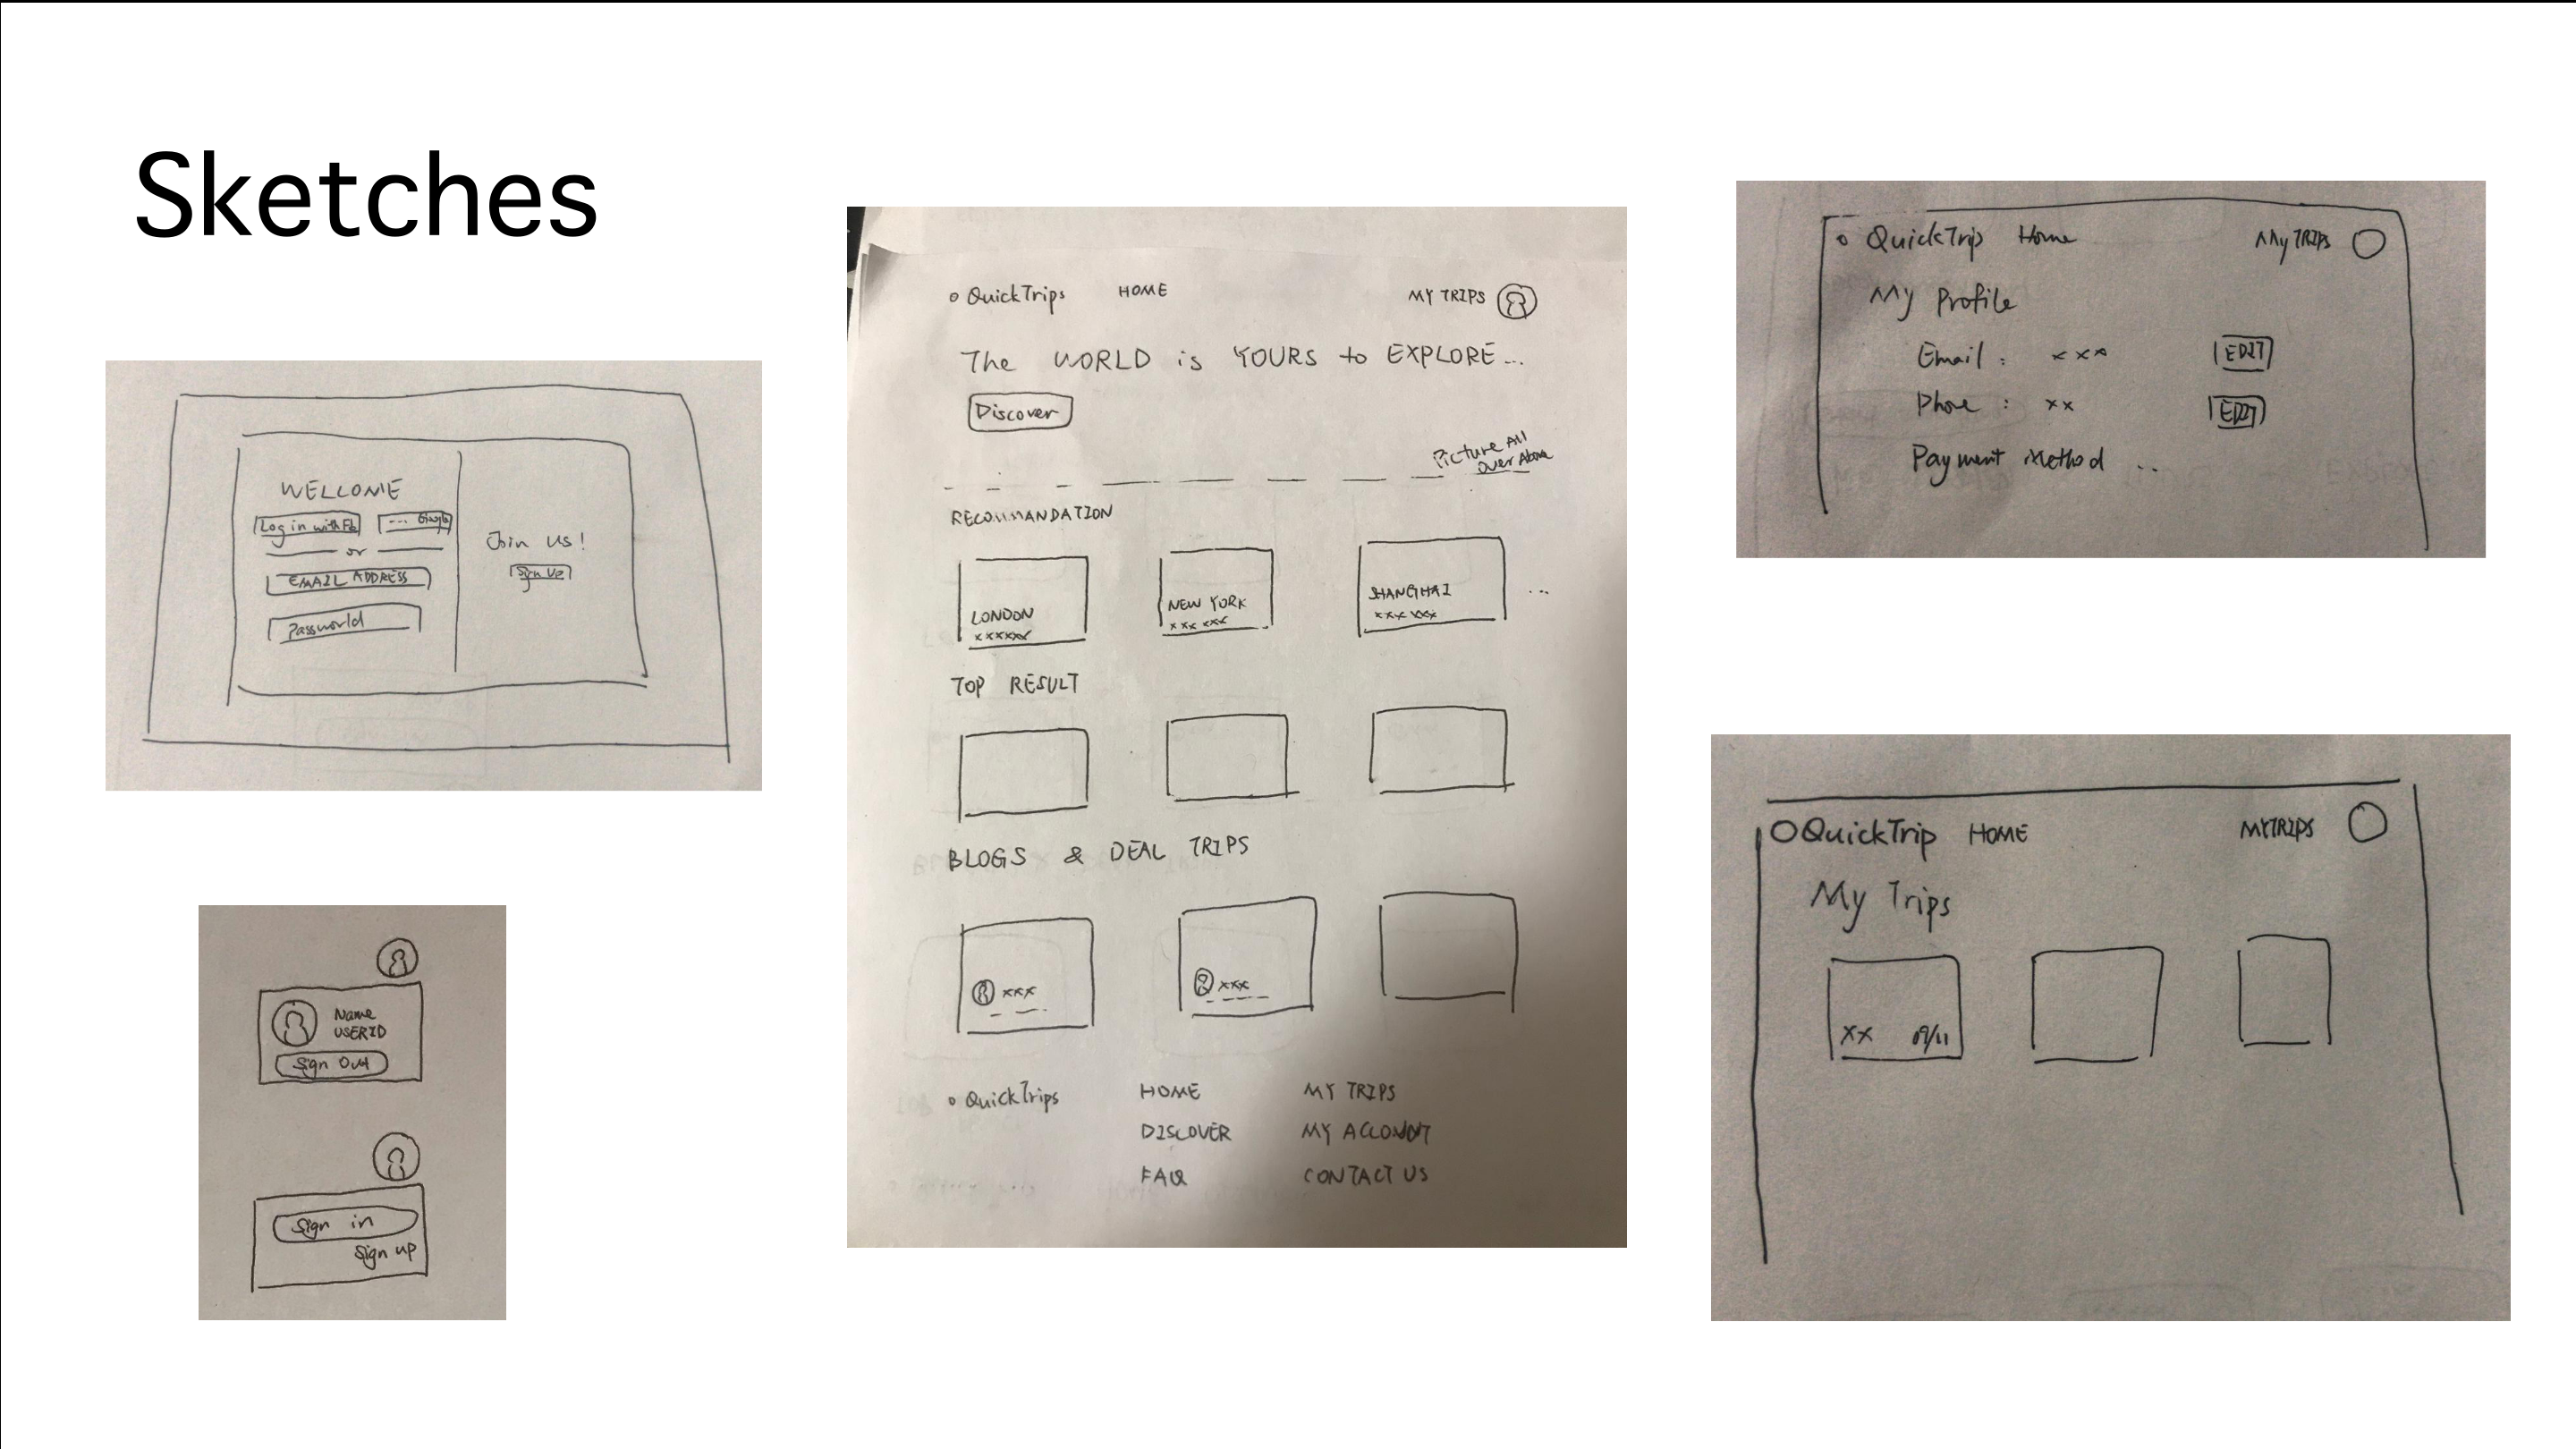 Sketches
WELCOME
Log in with Fb ... Google
or
EMAIL ADDRESS
Passworld
Join us!
Sign Up
Name
USERID
Sign Out
Sign in
Sign up
QuickTrips HOME MY TRIPS
The WORLD is YOURS to EXPLORE...
Discover
Picture All
Over Above
RECOMMANDATION
LONDON NEW YORK SHANGHAI ...
xxxxxx xxx xxx xxx xxx
TOP RESULT
BLOGS & DEAL TRIPS
xxx xxx
QuickTrips HOME MY TRIPS
DISCOVER MY ACCOUNT
FAQ CONTACT US
QuickTrip Home My TRIPS
My Profile
Email : xxx EDIT
Phone : xx EDIT
Payment Method ..
QuickTrip HOME MYTRIPS
My Trips
XX 09/11